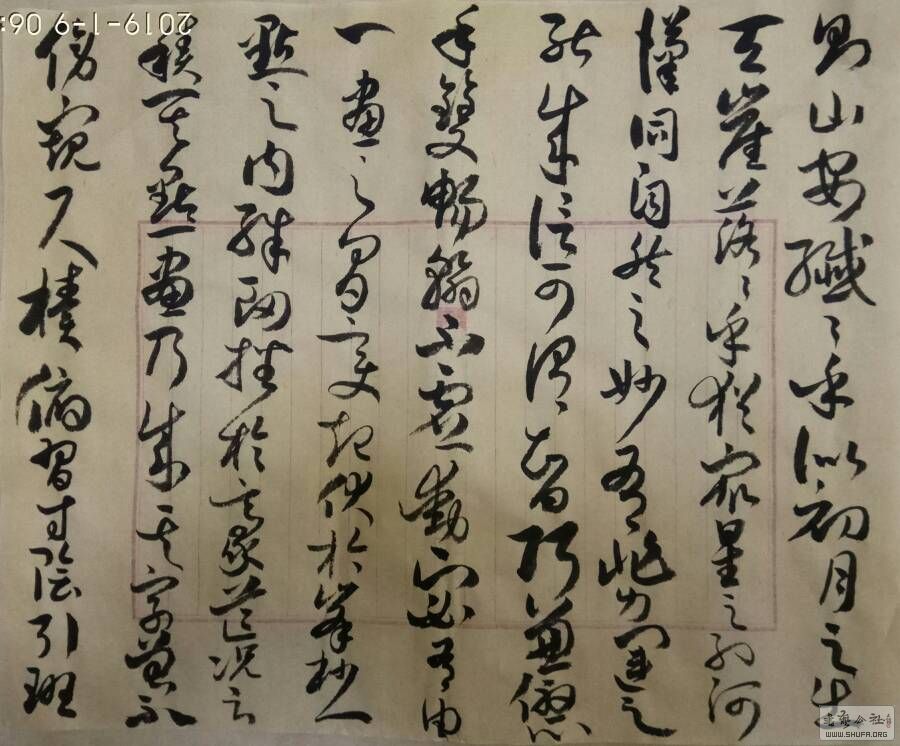 則山安纖〻乎似初月之出
天崖落〻乎猶眾星之列河
漢同自然之妙有非力運之
能成信可謂智巧兼優心
手雙暢翰不虛動下必有由
一畫之間變起伏於峯杪一
點之內殊衄挫於豪芒況云
積其點畫乃成其字曾不
傍窺尺牘俯習寸陰引班
2019-1-9 06:
WWW.SHUFA.ORG